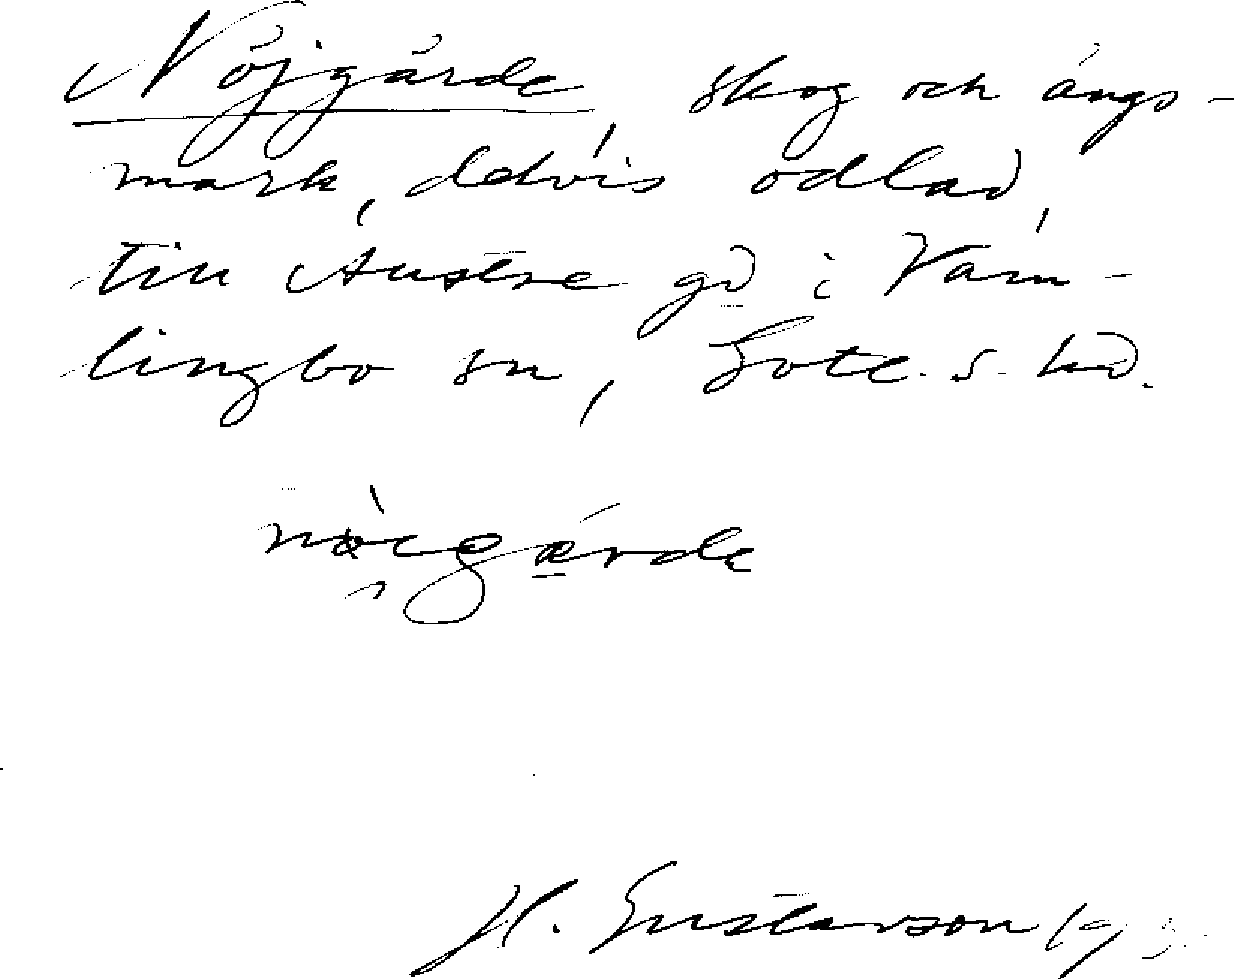 Nöjgärde, skog och ängs-
mark, delvis odlad,
till Austre gd i Väm-
lingbo sn, Gotl. s. hd.
nöigärde
H. Gustavson 193